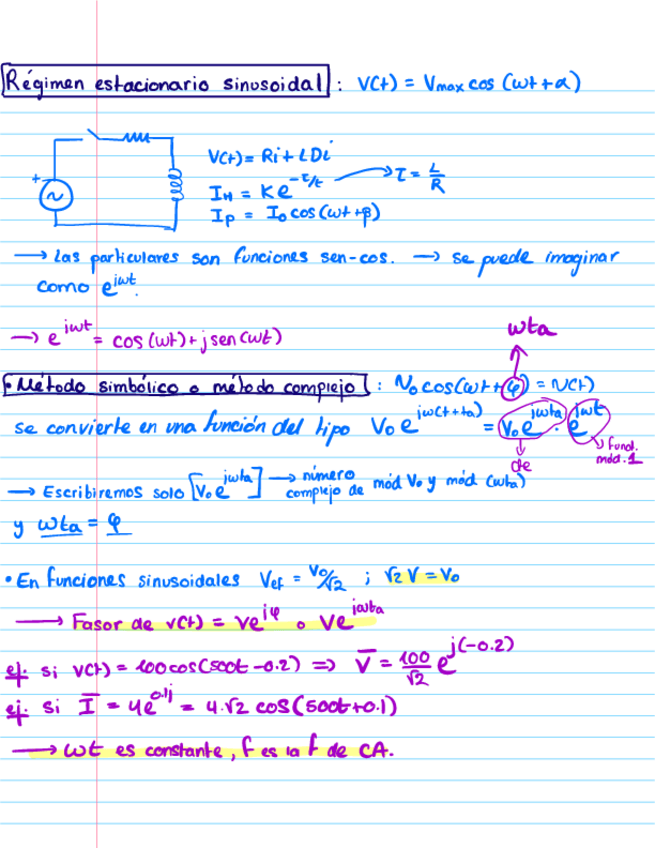 Régimen estacionario sinusoidal : V(t) = Vmax cos (ωt + α)
V(t) = Ri + LDi
I_H = Ke^(-t/τ) → τ = L/R
I_P = I₀ cos (ωt + β)
+
~
→ Las particulares son funciones sen-cos. → se puede imaginar
como e^(jωt).
→ e^(jωt) = cos (ωt) + j sen (ωt)
ωta
• Método simbólico o método complejo : V₀ cos(ωt + φ) = v(t)
se convierte en una función del tipo V₀ e^(jω(t+ta)) = V₀ e^(jωta) · e^(jωt)
de
→ Escribiremos solo [V₀ e^(jωta)] → número
complejo de mód V₀ y mód (ωta)
mód. 1
y ωta = φ
• En funciones sinusoidales Vef = V₀/√2 ; √2 V = V₀
→ Fasor de v(t) = Ve^(jφ) o Ve^(jωta)
ej. si v(t) = 100 cos(500t - 0.2) ⇒ V̅ = 100/√2 e^(j(-0.2))
ej. si I̅ = 4e^(0.1j) = 4.√2 cos (500t + 0.1)
→ ωt es constante, f es la f de CA.